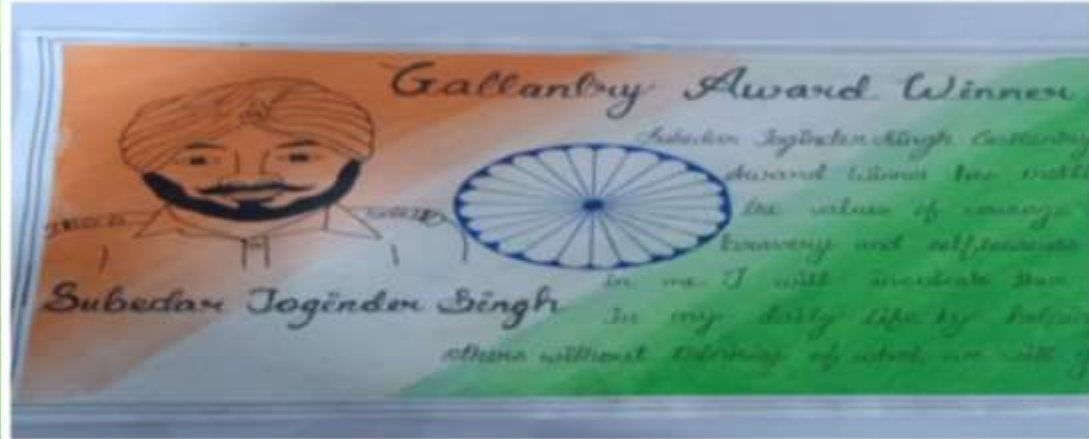 Gallantry Award Winner
Subedar Joginder Singh Gallantry
Award Winner has
the values of courage
bravery and selflessness
in me. I will inculcate them
In my daily life by
others without thinking of what we will
Subedar Joginder Singh